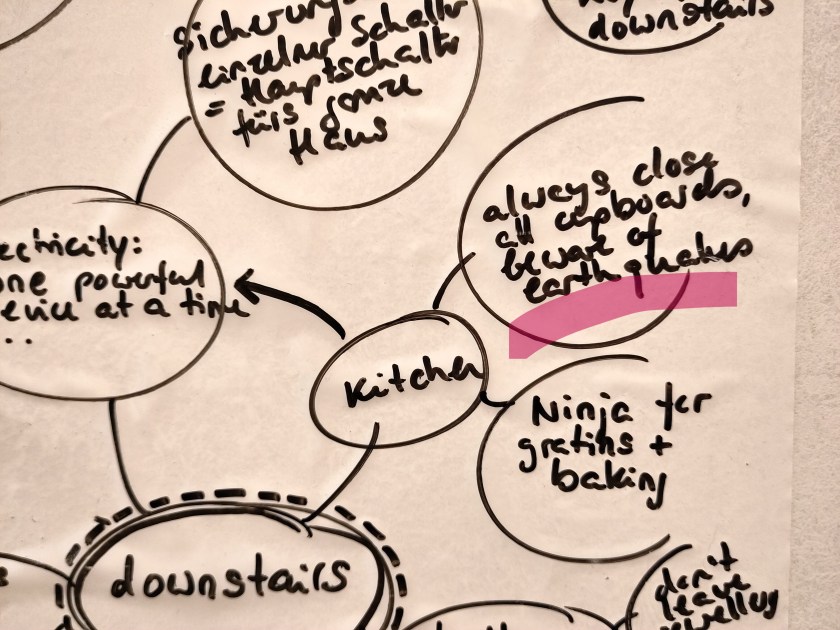 einzelner Schalter
= Hauptschalter
fürs ganze
Haus
downstairs
always close
all cupboards,
beware of
earthquakes
ectricity:
one powerful
evice at a time
..
Kitchen
Ninja for
gratins +
baking
downstairs
don't
leave